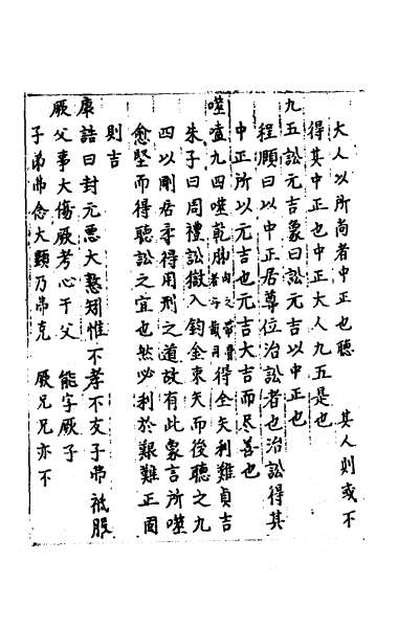 大人以所尚者中正也聽　其人則或不
得其中正也中正大人九五是也
九五訟元吉象曰訟元吉以中正也
程頤曰以中正居尊位治訟者也治訟得其
中正所以元吉也元吉大吉而尽善也
噬嗑九四噬乾胏肉之帶骨者得金矢利艱貞吉
朱子曰周禮訟獄入鈞金束矢而後聽之九
四以剛居柔得用刑之道故有此象言所噬
愈堅而得聽訟之宜也然必利於艱難正固
則吉
康誥曰封元惡大憝矧惟不孝不友子弗祗服
厥父事大傷厥考心于父　能字厥子
子弟弗念大顯乃弗克　厥兄兄亦不